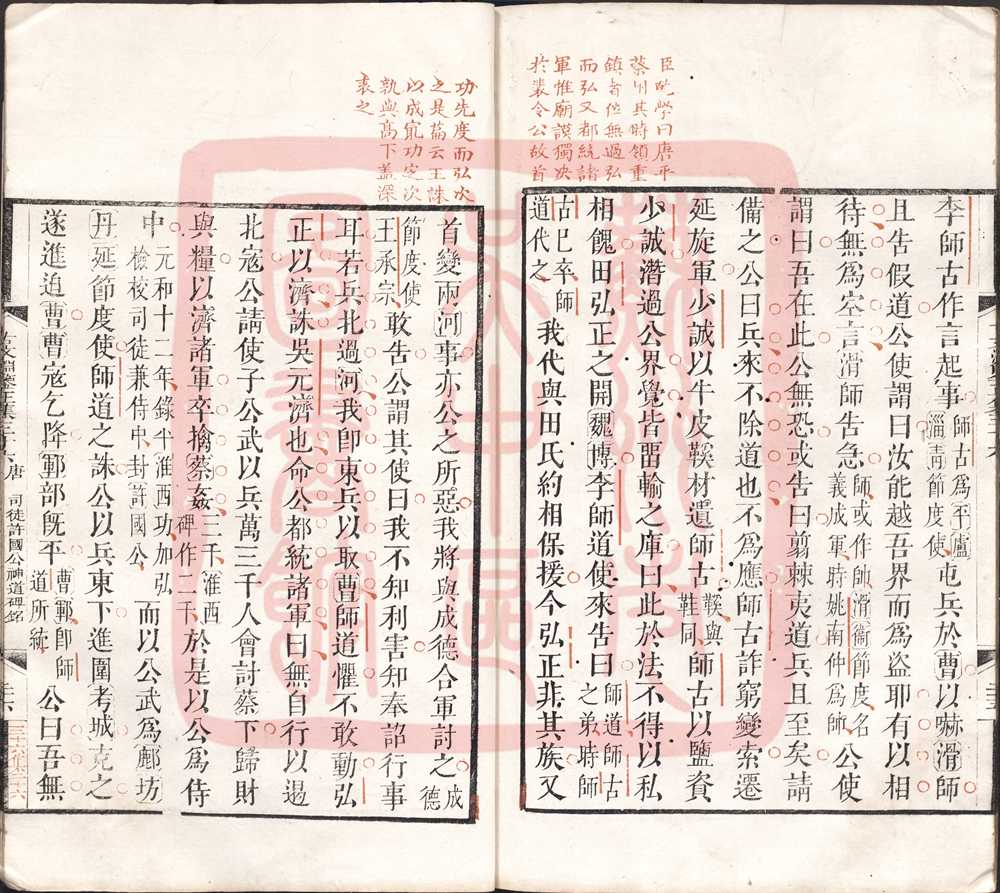 臣曉學曰唐平
蔡川其時領重
鎮者位無過弘
而弘又都統諸
軍惟廟謨獨决
於裴令公故首
李師古作言起事師古爲平盧淄青節度使屯兵於曹以嚇滑師
且告假道公使謂曰汝能越吾界而爲盜耶有以相
待無爲空言滑師告急師或作帥滑衞節度名義成軍時姚南仲爲帥公使
謂曰吾在此公無恐或告曰翦棘夷道兵且至矣請
備之公曰兵來不除道也不爲應師古詐窮變索遷
延旋軍少誠以牛皮鞵材遺師古鞵與鞋同師古以鹽資
少誠潛過公界覺皆畱輸之庫曰此於法不得以私
相餽田弘正之開魏博李師道使來告曰師道師古之弟時師
古已卒師道代之我代與田氏約相保援今弘正非其族又
功先度而弘次
之是葢云王誅
以成寔功定次
孰與高下葢深
表之
首變兩河事亦公之所惡我將與成德合軍討之成德
節度使王承宗敢告公謂其使曰我不知利害知奉詔行事
耳若兵北過河我卽東兵以取曹師道懼不敢動弘
正以濟誅吳元濟也命公都統諸軍曰無自行以遏
北寇公請使子公武以兵萬三千人會討蔡下歸財
與糧以濟諸軍卒擒蔡姦三千淮西碑作二千於是以公爲侍
中元和十二年錄平淮西功加弘檢校司徒兼侍中封許國公而以公武爲鄜坊
丹延節度使師道之誅公以兵東下進圍考城克之
遂進迫曹曹寇乞降鄆部旣平曹鄆卽師道所統公曰吾無
唐 司徒許國公神道碑銘